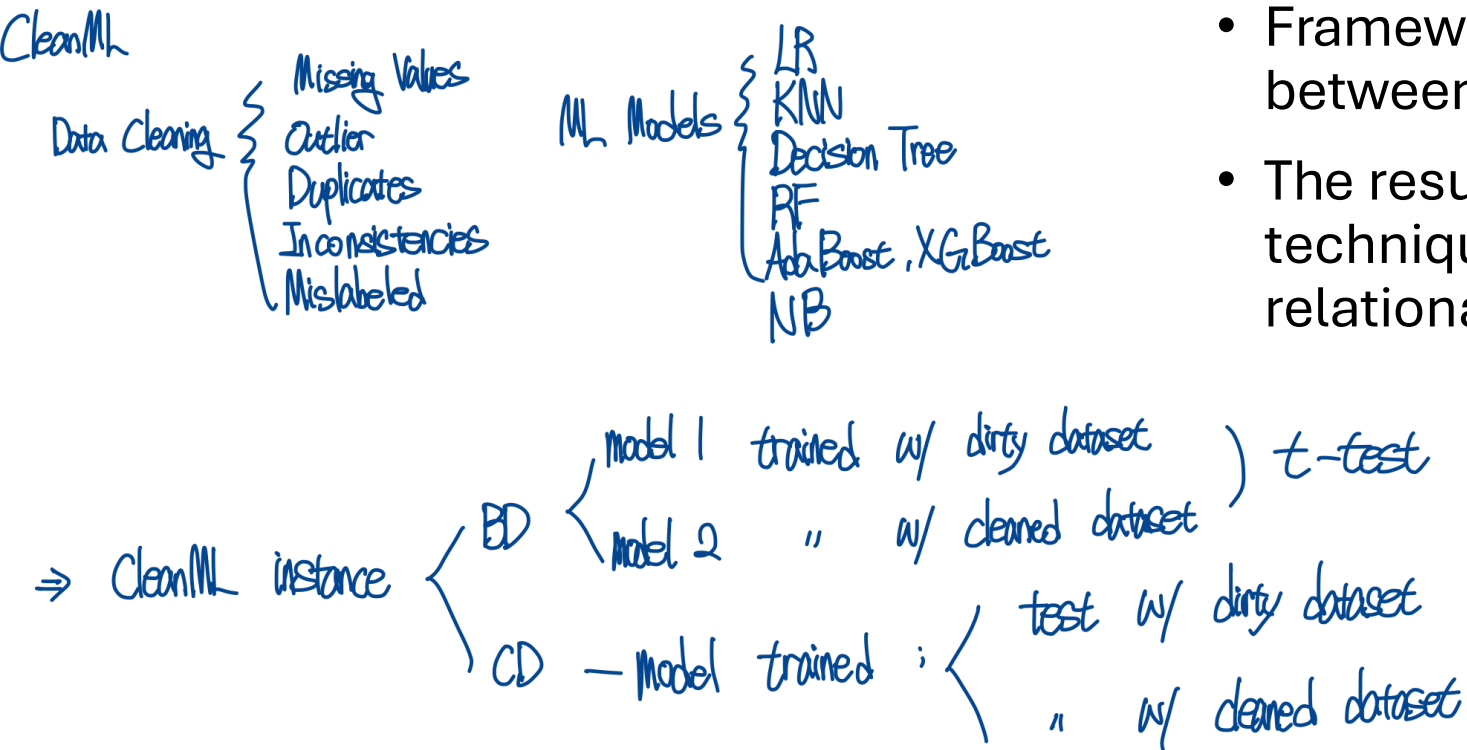 CleanML
Data Cleaning
Missing Values
Outlier
Duplicates
Inconsistencies
Mislabeled
ML Models
LR
KNN
Decision Tree
RF
AdaBoost, XGBoost
NB
• Framew
between
• The resu
techniqu
relationa
⇒ CleanML instance
BD
model 1 trained w/ dirty dataset
model 2 〃 w/ cleaned dataset
t-test
CD - model trained ;
test w/ dirty dataset
〃 w/ cleaned dataset